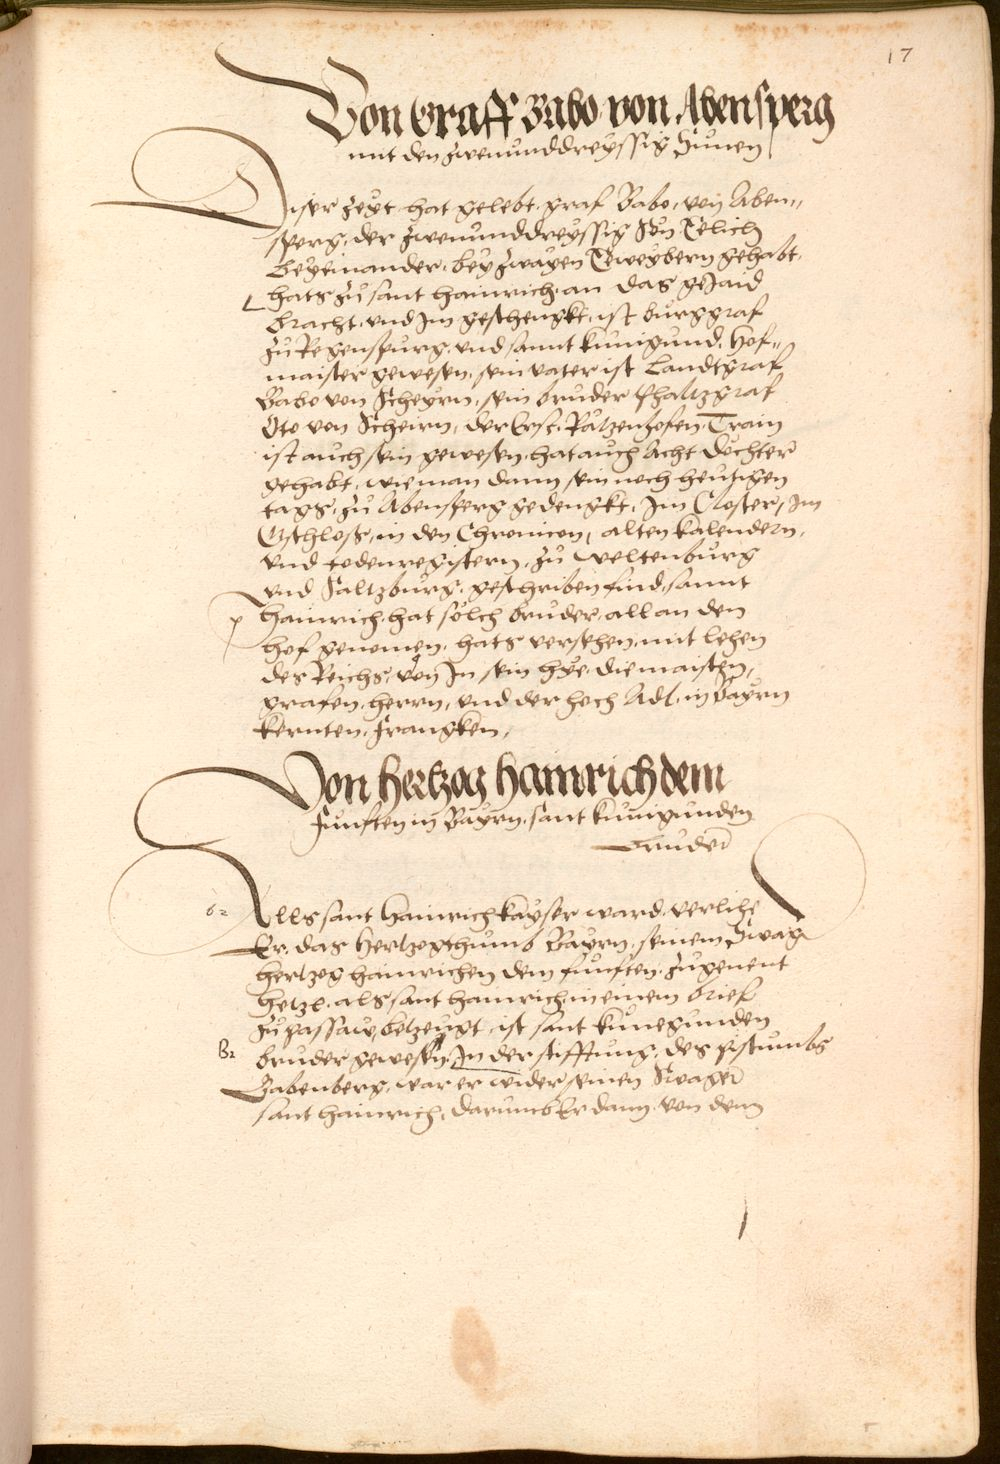 17
Von Graff Babo von Abensperg
mit den zwenunddreyssig Sunen
Diser zeyt hat gelebt graf Babo, von Aben=
sperg, der zwenunddreyssig Sön Eelich
beyeinander, bey zwayen Eeweybern gehabt,
hats zu sant Hainrich, an das gejaid
bracht, und Im geschengkt, ist burggraf
zu Regenspurg, und sannt Kunigund, Hof=
maister gewesen, sein vater ist Landtgraf
Babo von Scheyrn, sein bruder Phaltzgraf
Oto von Scheirn, der Erst, Ratzenhofen, Train
ist auch sein gewesen, hat auch Acht döchter
gehabt, wie man dann sein noch heutigen
tags, zu Abensperg gedengkt, Im Closter, Im
Gschloss, in den Chronicen, alten kalendern,
und todenregistern, zu Weltenburg
und Saltzburg, geschriben sind, sannt
Hainrich, hat sölch bruder, all an den
hof genomen, hats versehen, mit lehen
des Reichs, von In sein hye, die maisten,
grafen, herrn, und der hoch Adl, in Bayrn
kernten, Frangken,
Von Hertzog Hainrich dem
Funften in Bayrn, sant Kunigunden
Bruder
Alls sant Hainrich kayser ward, verlihe
Er, das Hertzogthumb Bayrn, seinem Swag
hertzog hainrichen dem funften, zugenent
Hetzl, als sant hainrich, in einem brief
zu passaw, betzeugt, ist sant kunegunden
bruder gewesen, In der stifftung, des pistumbs
Babenberg, war er wider seinen Swager
sant hainrich, darumb Er dann, von dem